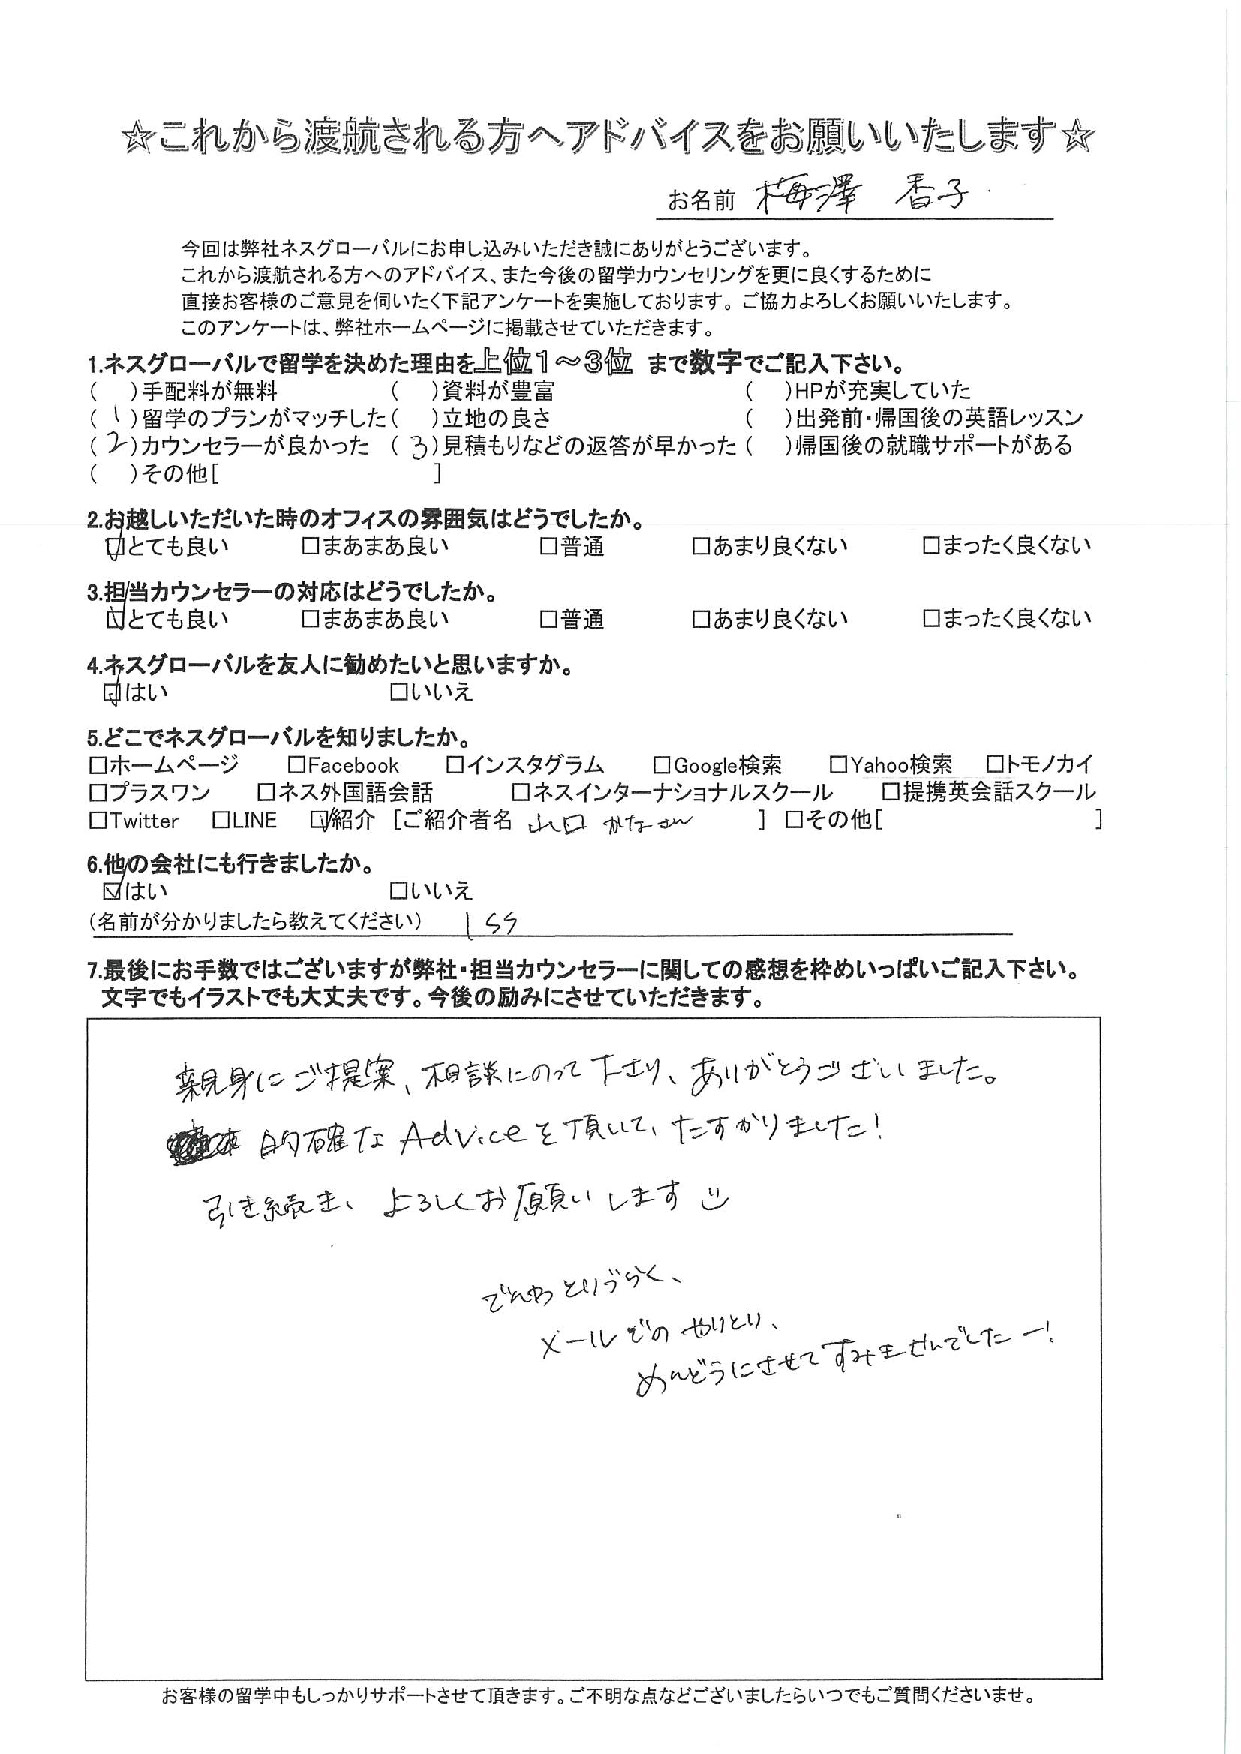 ☆これから渡航される方へアドバイスをお願いいたします☆
お名前 梅澤 香子
今回は弊社ネスグローバルにお申し込みいただき誠にありがとうございます。
これから渡航される方へのアドバイス、また今後の留学カウンセリングを更に良くするために
直接お客様のご意見を伺いたく下記アンケートを実施しております。ご協力よろしくお願いいたします。
このアンケートは、弊社ホームページに掲載させていただきます。
1.ネスグローバルで留学を決めた理由を上位1～3位 まで数字でご記入下さい。
( )手配料が無料 ( )資料が豊富 ( )HPが充実していた
(1)留学のプランがマッチした ( )立地の良さ ( )出発前・帰国後の英語レッスン
(2)カウンセラーが良かった (3)見積もりなどの返答が早かった ( )帰国後の就職サポートがある
( )その他[ ]
2.お越しいただいた時のオフィスの雰囲気はどうでしたか。
☑とても良い □まあまあ良い □普通 □あまり良くない □まったく良くない
3.担当カウンセラーの対応はどうでしたか。
☑とても良い □まあまあ良い □普通 □あまり良くない □まったく良くない
4.ネスグローバルを友人に勧めたいと思いますか。
☑はい □いいえ
5.どこでネスグローバルを知りましたか。
□ホームページ □Facebook □インスタグラム □Google検索 □Yahoo検索 □トモノカイ
□プラスワン □ネス外国語会話 □ネスインターナショナルスクール □提携英会話スクール
□Twitter □LINE ☑紹介 [ご紹介者名 山口 かなさん ] □その他[ ]
6.他の会社にも行きましたか。
☑はい □いいえ
(名前が分かりましたら教えてください) ISS
7.最後にお手数ではございますが弊社・担当カウンセラーに関しての感想を枠めいっぱいご記入下さい。
文字でもイラストでも大丈夫です。今後の励みにさせていただきます。
親身にご提案、相談にのって下さり、ありがとうございました。
的確なAdviceを頂いて、たすかりました!
引き続き、よろしくお願いします
でんわとりづらく、
メールでのやりとり、
めんどうにさせてすみませんでしたー!
お客様の留学中もしっかりサポートさせて頂きます。ご不明な点などございましたらいつでもご質問くださいませ。